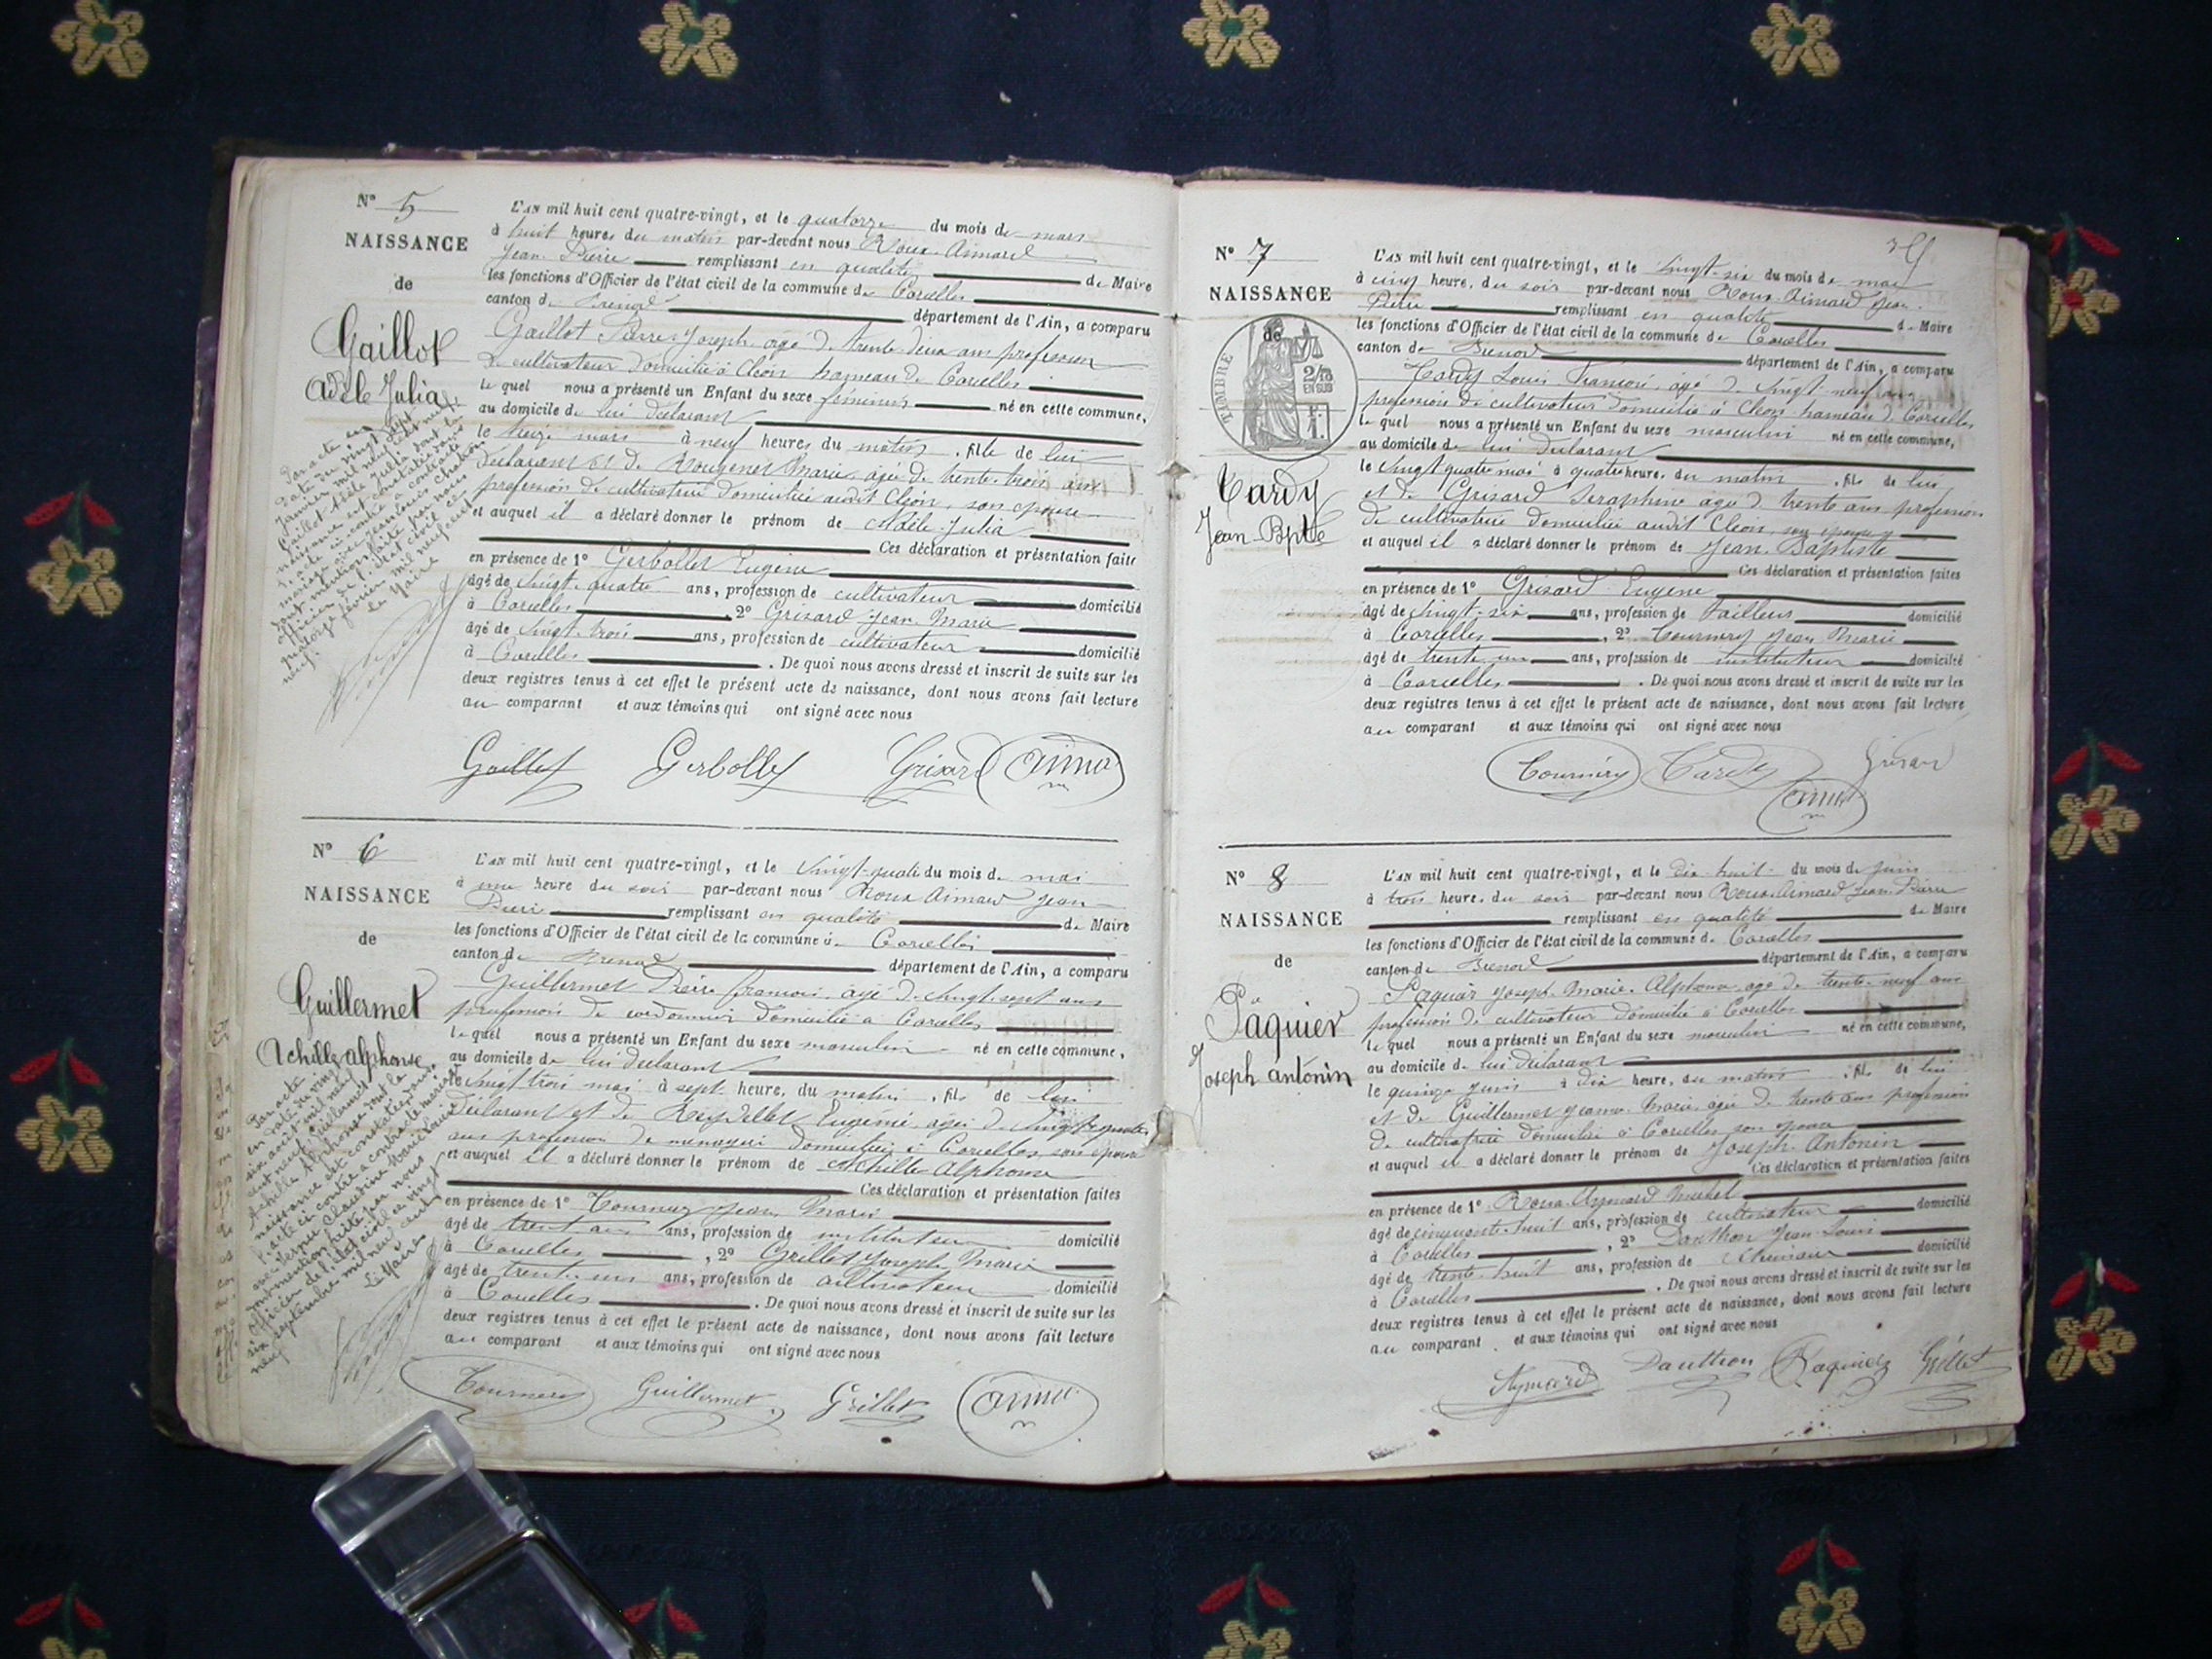 N° 5
NAISSANCE
de
Gaillot
Adèle Julia
L'AN mil huit cent quatre-vingt, et le quatorze du mois de mars
à huit heures du matin par-devant nous Roux-Aimard
Jean Pierre remplissant en qualité de Maire
les fonctions d'Officier de l'état civil de la commune de Corcelles
canton de Brenod département de l'Ain, a comparu
Gaillot Pierre Joseph âgé de trente deux ans profession
de cultivateur domicilié à Cléon hameau de Corcelles
le quel nous a présenté un Enfant du sexe féminin né en cette commune,
au domicile de lui déclarant
le treize mars à neuf heures du matin, fille de lui
déclarant et de Marie, âgée de trente-trois ans
profession de cultivatrice domiciliée audit Cléon, son épouse
et auquel il a déclaré donner le prénom de Adèle-Julia
Ces déclaration et présentation faites
en présence de 1° Gerbollet Eugène
âgé de vingt-quatre ans, profession de cultivateur domicilié
à Corcelles, 2° Grisard Jean Marie
âgé de vingt-trois ans, profession de cultivateur domicilié
à Corcelles. De quoi nous avons dressé et inscrit de suite sur les
deux registres tenus à cet effet le présent acte de naissance, dont nous avons fait lecture
au comparant et aux témoins qui ont signé avec nous
Par acte en
date du vingt sept
Janvier mil neuf cent neuf,
Gaillot Adèle Julia dont la
naissance est constatée dans
l'acte ci-contre a contracté
mariage avec
dont mention faite par nous
officier de l'état civil ce
quatorze février mil neuf cent
neuf.
Le Maire
Gaillot Gerbollet Grisard Aimard
N° 6
NAISSANCE
de
Guillermet
Achille alphonse
L'AN mil huit cent quatre-vingt, et le vingt-quatre du mois de mai
à une heure du soir par-devant nous Roux Aimard Jean
Pierre remplissant en qualité de Maire
les fonctions d'Officier de l'état civil de la commune de Corcelles
canton de Brenod département de l'Ain, a comparu
Guillermet Pierre françois, âgé de vingt-sept ans
profession de cordonnier domicilié à Corcelles
le quel nous a présenté un Enfant du sexe masculin né en cette commune,
au domicile de lui déclarant
le vingt trois mai à sept heure, du matin, fils de lui
déclarant et de Eugénie, âgée de vingt quatre
ans profession de ménagère domiciliée à Corcelles, son épouse
et auquel il a déclaré donner le prénom de Achille Alphonse
Ces déclaration et présentation faites
en présence de 1° Tournery Jean Marie
âgé de trent ans ans, profession de instituteur domicilié
à Corcelles, 2° Grillet Joseph Marie
âgé de trente-un ans, profession de cultivateur domicilié
à Corcelles. De quoi nous avons dressé et inscrit de suite sur les
deux registres tenus à cet effet le présent acte de naissance, dont nous avons fait lecture
au comparant et aux témoins qui ont signé avec nous
Par acte
en date du vingt
six août mil neuf
cent neuf, Guillermet
Achille Alphonse dont la
naissance est constatée dans
l'acte ci-contre a contracté mariage
avec Claudine Marie
dont mention faite par nous
officier de l'état civil ce vingt
six septembre mil neuf cent
neuf
Le Maire
Tournery Guillermet Grillet Aimard
N° 7
NAISSANCE
de
TIMBRE
2/10
EN SUS
Tardy
Jean Bpte
L'AN mil huit cent quatre-vingt, et le vingt-six du mois de mai
à cinq heure, du soir par-devant nous Roux-Aimard Jean
Pierre remplissant en qualité de Maire
les fonctions d'Officier de l'état civil de la commune de Corcelles
canton de Brenod département de l'Ain, a comparu
Tardy Louis François, âgé de vingt-neuf ans
profession de cultivateur domicilié à Cléon hameau de Corcelles
le quel nous a présenté un Enfant du sexe masculin né en cette commune,
au domicile de lui déclarant
le vingt quatre mai à quatre heure, du matin, fils de lui
et de Grisard Séraphine âgée de trente ans profession
de cultivatrice domiciliée audit Cléon, son épouse
et auquel il a déclaré donner le prénom de Jean-Baptiste
Ces déclaration et présentation faites
en présence de 1° Grisard Eugène
âgé de vingt-six ans, profession de tailleur domicilié
à Corcelles, 2° Tournery Jean Marie
âgé de trente un ans, profession de instituteur domicilié
à Corcelles. De quoi nous avons dressé et inscrit de suite sur les
deux registres tenus à cet effet le présent acte de naissance, dont nous avons fait lecture
au comparant et aux témoins qui ont signé avec nous
Tournery Tardy Grisard
Aimard
N° 8
NAISSANCE
de
Pâquier
Joseph antonin
L'AN mil huit cent quatre-vingt, et le dix huit du mois de juin
à trois heure, du soir par-devant nous Roux-Aimard Jean-Pierre
remplissant en qualité de Maire
les fonctions d'Officier de l'état civil de la commune de Corcelles
canton de Brenod département de l'Ain, a comparu
Pâquier Joseph-Marie-Alphonse âgé de trente-neuf ans
profession de cultivateur domicilié à Corcelles
le quel nous a présenté un Enfant du sexe masculin né en cette commune,
au domicile de lui déclarant
le quinze juin à dix heure, du matin, fils de lui
et de Guillermet Jeanne-Marie, âgée de trente ans profession
de cultivatrice domiciliée à Corcelles son épouse
et auquel il a déclaré donner le prénom de Joseph-Antonin
Ces déclaration et présentation faites
en présence de 1° Roux-Aymard Michel
âgé de cinquante-huit ans, profession de cultivateur domicilié
à Corcelles, 2° Dauthon Jean-Louis
âgé de trente-huit ans, profession de domicilié
à Corcelles. De quoi nous avons dressé et inscrit de suite sur les
deux registres tenus à cet effet le présent acte de naissance, dont nous avons fait lecture
au comparant et aux témoins qui ont signé avec nous
Aymard Dauthon Paquier Grillet